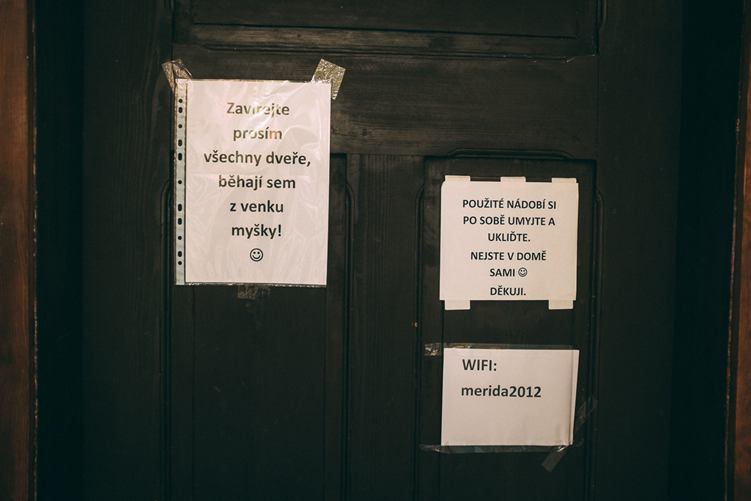 Zavírejte
prosím
všechny dveře,
běhají sem
z venku
myšky!
☺
POUŽITÉ NÁDOBÍ SI
PO SOBĚ UMYJTE A
UKLIĎTE.
NEJSTE V DOMĚ
SAMI ☺
DĚKUJI.
WIFI:
merida2012